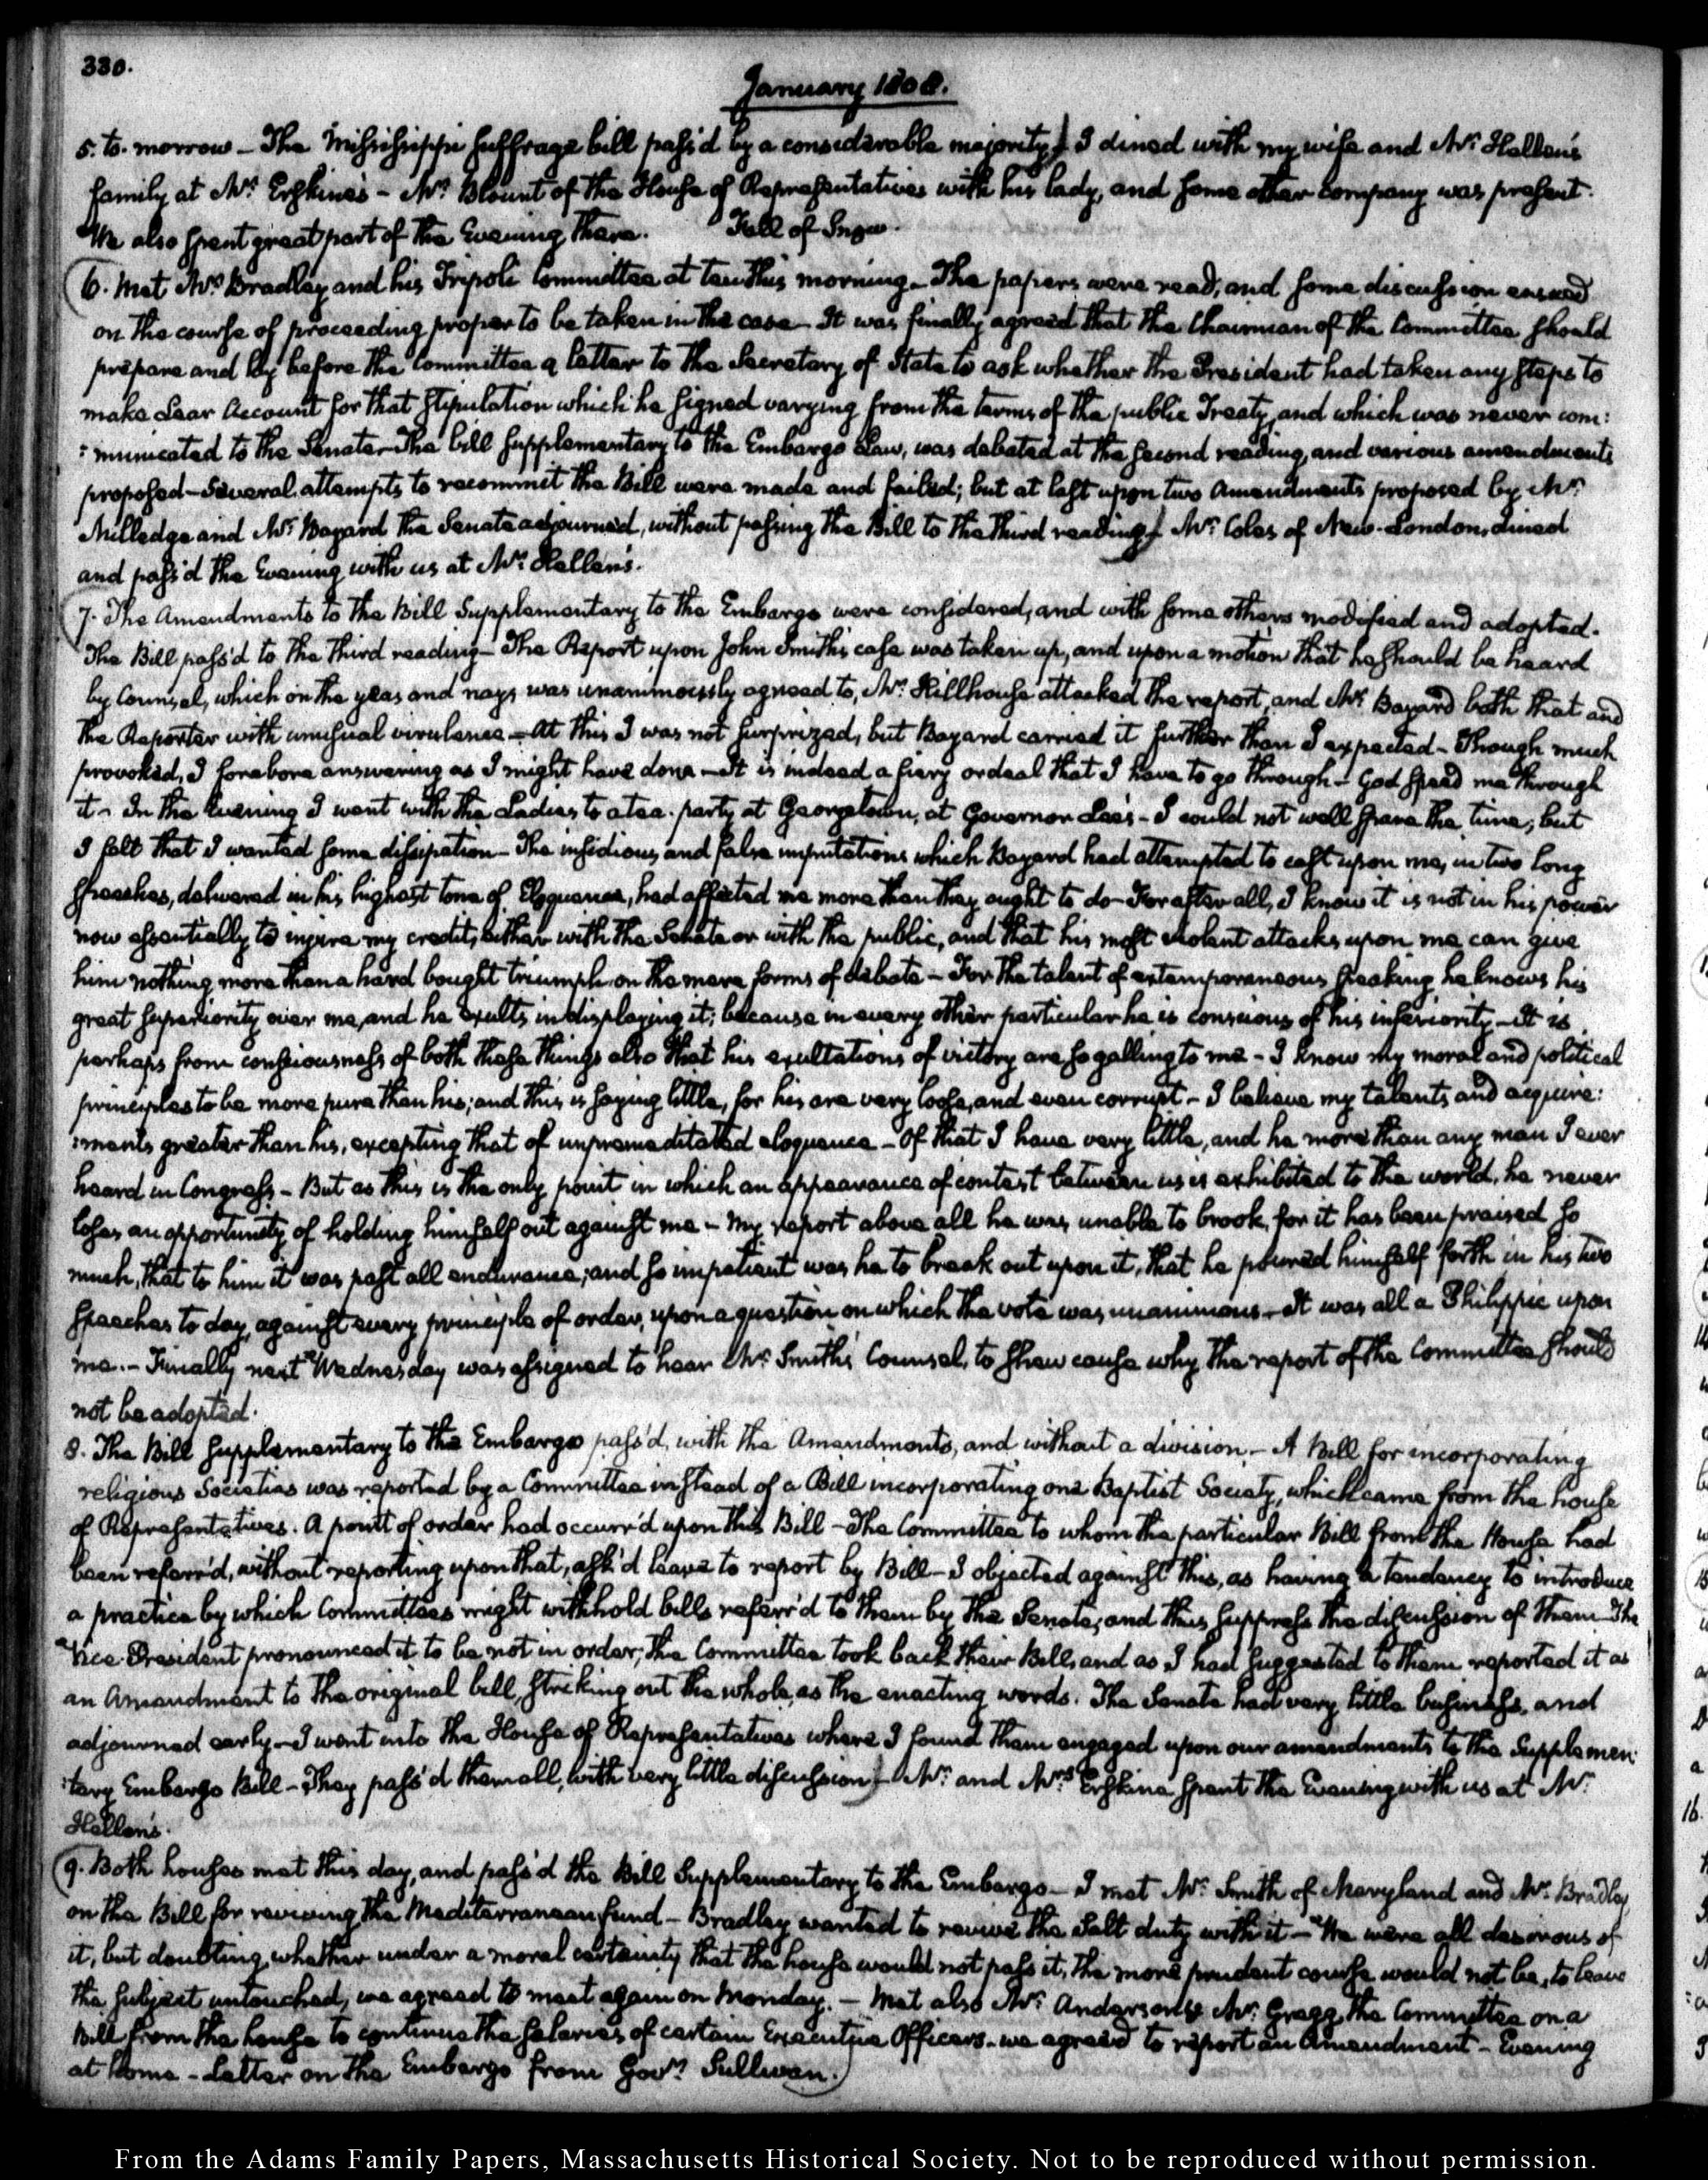 330.
January 1808.
5. to-morrow – The Mississippi suffrage bill pass'd by a considerable majority. I dined with my wife and Mr: Hellen's
family at Mr: Erskine's – Mr: Blount of the House of Representatives with his lady, and some other company was present.
We also spent great part of the Evening there. Fall of Snow.
6. Met Mr: Bradley and his Tripoli Committee at ten this morning – The papers were read, and some discussion ensued
on the course of proceeding proper to be taken in the case – It was finally agreed that the Chairman of the Committee should
prepare and lay before the Committee a letter to the Secretary of State to ask whether the President had taken any steps to
make Lear Account for that stipulation which he signed varying from the terms of the public Treaty, and which was never com:
:municated to the Senate – The bill supplementary to the Embargo Law, was debated at the second reading, and various amendments
proposed – Several attempts to recommit the Bill were made and failed; but at last upon two Amendments proposed by Mr:
Milledge and Mr: Bayard the Senate adjourned, without passing the Bill to the third reading. Mr: Coles of New-London, dined
and pass'd the Evening with us at Mr: Hellen's.
7. The Amendments to the Bill Supplementary to the Embargo were considered, and with some others modified and adopted.
The Bill pass'd to the third reading – The Report upon John Smith's case was taken up, and upon a motion that he should be heard
by Counsel, which on the yeas and nays was unanimously agreed to, Mr: Hillhouse attacked the report, and Mr: Bayard both that and
the Reporter with unusual virulence – At this I was not surprized, but Bayard carried it further than I expected – Though much
provoked, I forebore answering as I might have done – It is indeed a fiery ordeal that I have to go through – God speed me through
it – In the Evening I went with the Ladies to a tea-party at Georgetown, at Governor Lee's – I could not well spare the time, but
I felt that I wanted some dissipation – The insidious and false imputations which Bayard had attempted to cast upon me, in two long
speeches, delivered in his highest tone of Eloquence, had affected me more than they ought to do – For after all, I know it is not in his power
now essentially to injure my credit, either with the Senate or with the public, and that his most violent attacks upon me can give
him nothing more than a hard bought triumph, on the mere forms of debate – For the talent of extemporaneous speaking he knows his
great superiority over me, and he exults in displaying it; because in every other particular he is conscious of his inferiority – It is
perhaps from consciousness of both these things also that his exultations of victory are so galling to me – I know my moral and political
principles to be more pure than his; and this is saying little, for his are very loose, and even corrupt – I believe my talents and acquire:
:ments greater than his, excepting that of unpremeditated eloquence – Of that I have very little, and he more than any man I ever
heard in Congress – But as this is the only point in which an appearance of contest between us is exhibited to the world, he never
loses an opportunity of holding himself out against me – My report above all he was unable to brook, for it has been praised so
much, that to him it was past all endurance; and so impatient was he to break out upon it, that he poured himself forth in his two
speeches to day, against every principle of order, upon a question on which the vote was unanimous – It was all a Philippic upon
me. – Finally next Wednesday was assigned to hear Mr: Smith's Counsel, to shew cause why the report of the Committee should
not be adopted.
8. The Bill Supplementary to the Embargo pass'd, with the Amendments, and without a division – A Bill for incorporating
religious Societies was reported by a Committee instead of a Bill incorporating one Baptist Society, which came from the house
of Representatives. A point of order had occurr'd upon this Bill – The Committee to whom the particular Bill from the House had
been referr'd, without reporting upon that, ask'd leave to report by Bill – I objected against this, as having a tendency to introduce
a practice by which Committees might withhold bills referr'd to them by the Senate, and thus suppress the discussion of them – The
Vice-President pronounced it to be not in order; the Committee took back their Bill, and as I had suggested to them reported it as
an Amendment to the original bill, striking out the whole, as the enacting words. The Senate had very little business, and
adjourned early – I went into the House of Representatives where I found them engaged upon our amendments to the Supplemen:
:tary Embargo Bill – They pass'd them all, with very little discussion – Mr: and Mrs: Erskine spent the Evening with us at Mr:
Hellen's.
9. Both houses met this day, and pass'd the Bill Supplementary to the Embargo – I met Mr: Smith of Maryland and Mr: Bradley
on the Bill for reviving the Mediterranean fund – Bradley wanted to revive the Salt duty with it – We were all desirous of
it, but doubting whether under a moral certainty that the house would not pass it, the more prudent course would not be, to leave
the subject untouched, we agreed to meet again on Monday. – Met also Mr: Anderson & Mr: Gregg, the Committee on a
Bill from the house to continue the salaries of certain Executive Officers – we agreed to report an Amendment – Evening
at home – Letter on the Embargo from Govr: Sullivan.
From the Adams Family Papers, Massachusetts Historical Society. Not to be reproduced without permission.